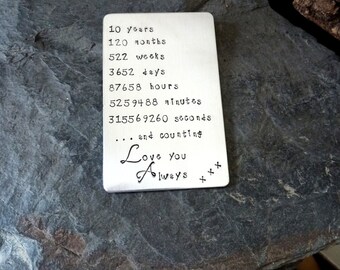 10 years
120 months
522 weeks
3652 days
87658 hours
5259488 minutes
315569260 seconds
...and counting
Love you
Always
+++